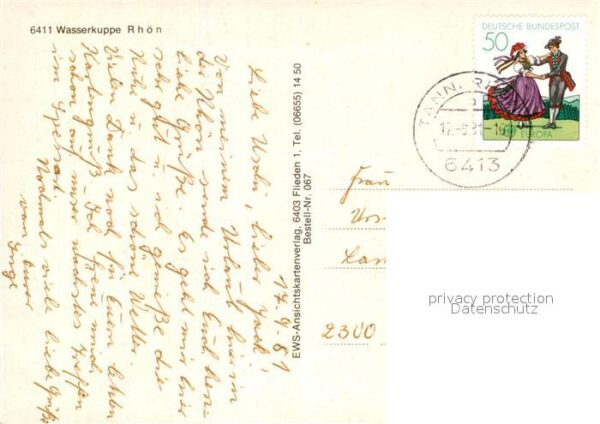 6411 Wasserkuppe Rhön
17.9.81
Liebe Uschi, lieber Jack!
Von meinem Urlaub hier in
der Rhön sende ich Euch herz-
liche Grüße. Es geht mir hier
sehr gut u. ich genieße die
Natur u. das schöne Wetter.
Vielen Dank noch für Euren lieben
Ich freue mich
schon auf unser nächstes Treffen
im
Nochmals viele liebe Grüße
von Eurer
Inge
EWS-Ansichtskartenverlag, 6403 Flieden 1, Tel. (06655) 14 50
Bestell-Nr. 067
DEUTSCHE BUNDESPOST
50
EUROPA
TANN
6413
Frau
2300
privacy protection
Datenschutz